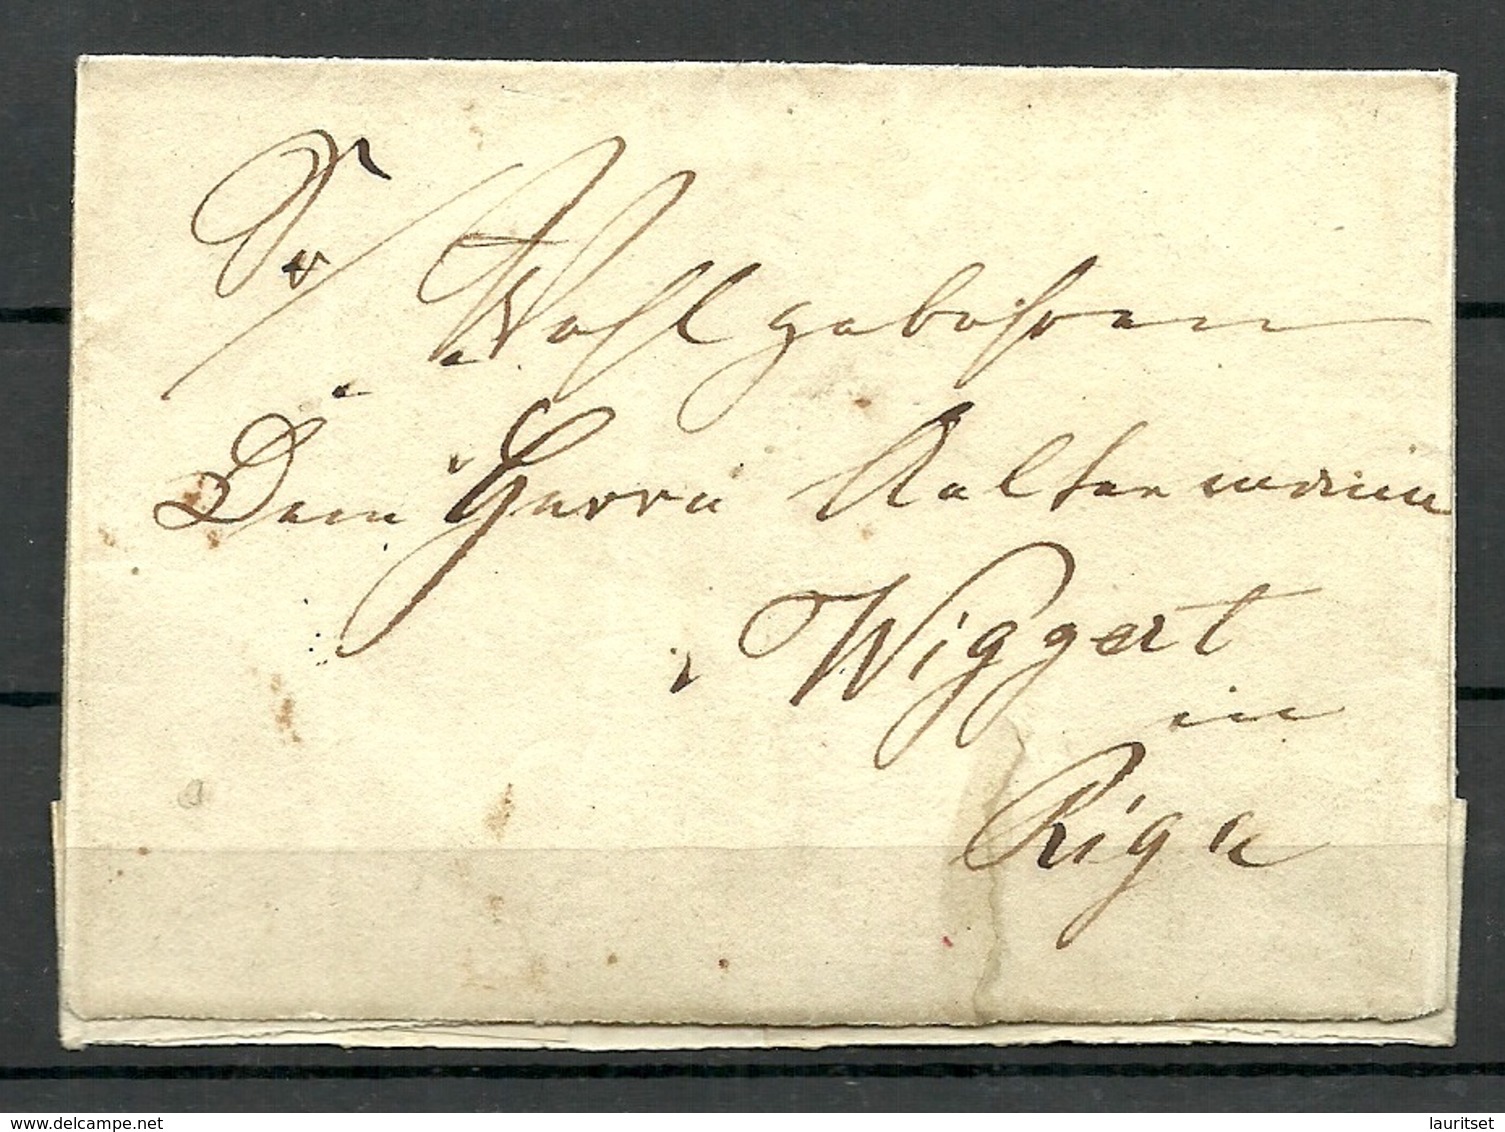 Sr Wohlgebohren
Dem Herrn Aeltermann
Wiggert
in
Riga
delcampe.net
lauritset